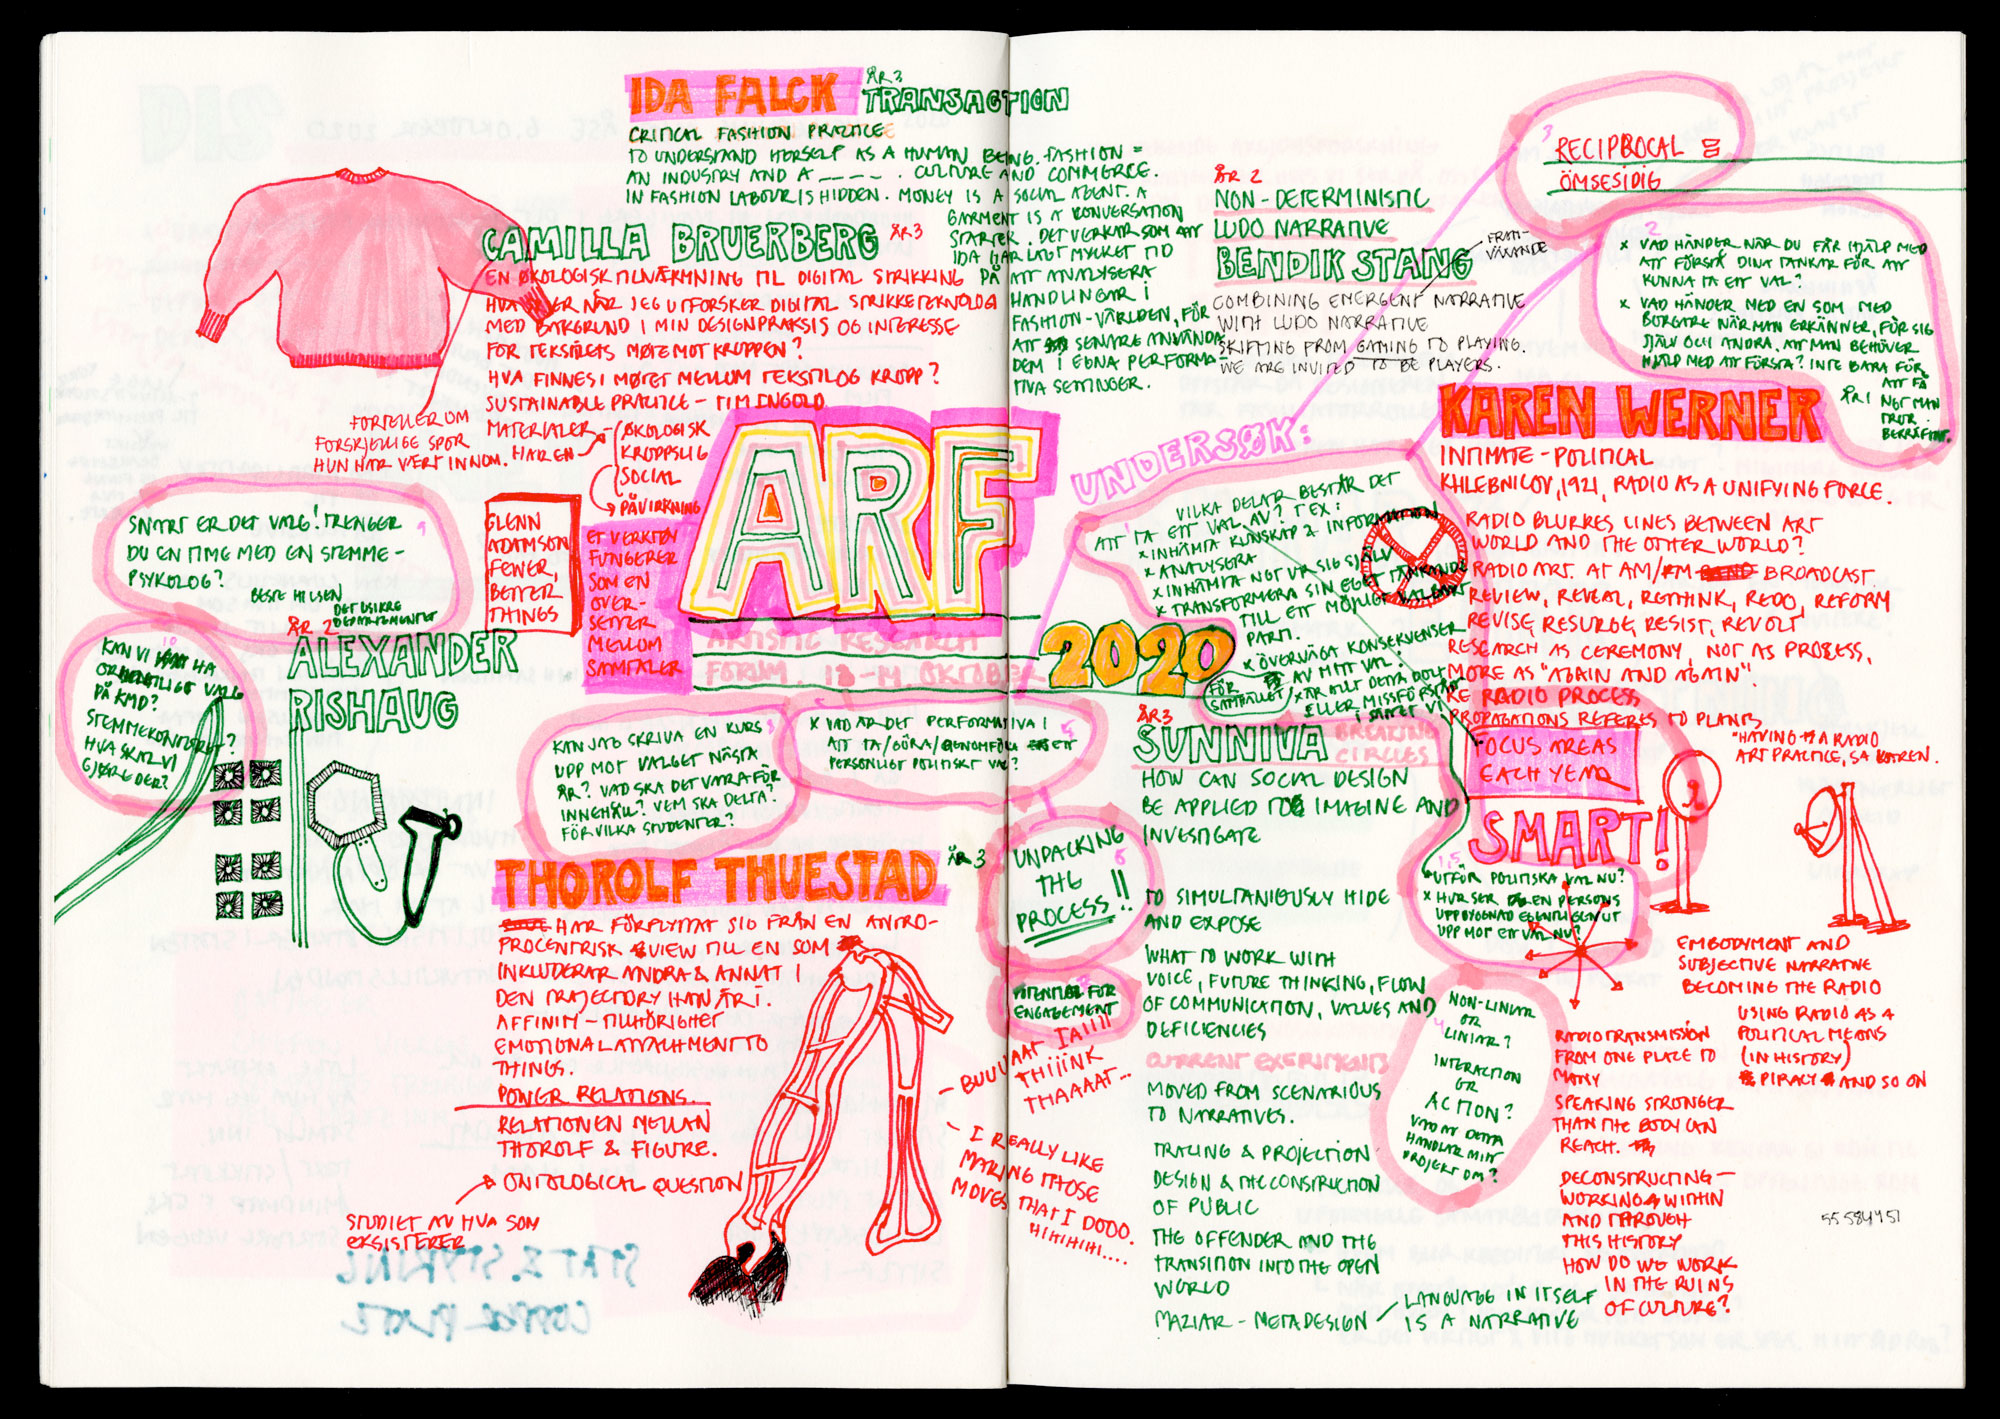 IDA FALCK ÅR3
TRANSACTION
CRITICAL FASHION PRACTICE
TO UNDERSTAND HERSELF AS A HUMAN BEING. FASHION =
AN INDUSTRY AND A _ _ _ _ . CULTURE AND COMMERCE.
IN FASHION LABOUR IS HIDDEN. MONEY IS A SOCIAL AGENT. A
GARMENT IS A KONVERSATION
STARTER. DET VERKAR SOM ATT
IDA HAR LAGT MYCKET TID
PÅ ATT ANALYSERA
HANDLINGAR I
FASHION-VÄRLDEN, FÖR
ATT SENARE ANVÄNDA
DEM I EGNA PERFORMA-
TIVA SETTINGER.
CAMILLA BRUERBERG ÅR3
EN ØKOLOGISK TILNÆRMNING TIL DIGITAL STRIKKING
HVA SKJER NÅR JEG UTFORSKER DIGITAL STRIKKETEKNOLOGI
MED BAKGRUND I MIN DESIGNPRAKSIS OG INTERESSE
FOR TEKSTILETS MØTE MOT KROPPEN?
HVA FINNES I MØTET MELLOM TEKSTIL OG KROPP?
SUSTAINABLE PRACTICE - TIM INGOLD
MATERIALER - HAR EN
ØKOLOGISK
KROPPSLIG
SOCIAL
PÅVIRKNING
FORTELLER OM
FORSKJELLIGE SPOR
HUN HAR VÆRT INNOM.
GLENN
ADAMSON
FEWER,
BETTER
THINGS
ET VERKTØY
FUNGERER
SOM EN
OVER-
SETTER
MELLOM
SAMTALER
ARF
ARTISTIC RESEARCH
FORUM, 12-14 OKTOBER
2020
9
SNART ER DET VALG! TRENGER
DU EN TIME MED EN STEMME-
PSYKOLOG?
BESTE HILSEN
DET USIKRE
DEPARTEMENTET
10
KAN VI HA
ORDENTLIGE VALG
PÅ KMD?
STEMMEKONTORET?
HVA SKAL VI
GJØRE DER?
ÅR 2
ALEXANDER
RISHAUG
KAN JAG SKRIVA EN KURS
UPP MOT VALGET NÄSTA
ÅR? VAD SKA DET VARA FÖR
INNEHÅLL? VEM SKA DELTA?
FÖR VILKA STUDENTER?
X VAD ÄR DET PERFORMATIVA I
ATT TA/GÖRA/GENOMFÖRA ETT
PERSONLIGT POLITISKT VAL?
THOROLF THUESTAD ÅR 3
HAR FÖRFLYTTAT SIG FRÅN EN ANTRO-
PROCENTRISK VIEW TILL EN SOM
INKLUDERAR ANDRA & ANNAT I
DEN TRAJECTORY HAN ÄR I.
AFFINITY - TILLHÖRIGHET
EMOTIONAL ATTACHMENT TO
THINGS.
POWER RELATIONS.
RELATIONEN MELLAN
THOROLF & FIGURE.
ONTOLOGICAL QUESTION
STUDIET AV HVA SOM
EKSISTERER
UNPACKING
THE
PROCESS!!
6
POTENTIAL FOR
ENGAGEMENT
- BUUUAAT IAIIII
THIIINK
THAAAAT...
- I REALLY LIKE
MAKING THOSE
MOVES THAT I DOOO.
HIHIHIHI....
ÅR 2
NON-DETERMINISTIC
LUDO NARRATIVE
BENDIK STANG
FRAM-
VÄXANDE
COMBINING EMERGENT NARRATIVE
WITH LUDO NARRATIVE
SKIFTING FROM GAMING TO PLAYING.
WE ARE INVITED TO BE PLAYERS.
3
RECIPROCAL =
ÖMSESIDIG
2
X VAD HÄNDER NÄR DU FÅR HJÄLP MED
ATT FÖRSTÅ DINA TANKAR FÖR ATT
KUNNA TA ETT VAL?
X VAD HÄNDER MED EN SOM MED
BORGARE NÄR MAN ERKÄNNER, FÖR SIG
SJÄLV OCH ANDRA, ATT MAN BEHÖVER
HJÄLP MED ATT FÖRSTÅ? INTE BARA FÖR
ATT FÅ
NGT MAN
TROR
BEKRÄFTAT.
UNDERSØK:
1
VILKA DELAR BESTÅR DET
ATT TA ETT VAL AV? T EX:
X INHÄMTA KUNSKAP & INFORMATION
X ANALYSERA
X INHÄMTA NGT UR SIG SJÄLV
X TRANSFORMERA SIN EGET TÄNKANDE
TILL ETT MÖJLIGT VALBART
PARTI.
X ÖVERVÄGA KONSEKVENSER
AV MITT VAL?
FÖR
SAMHÄLLET/
X ÄR ALLT DETTA DOLT
ELLER MISSFÖRSTÅTT
KAREN WERNER ÅR1
INTIMATE - POLITICAL
KHLEBNICOV, 1921, RADIO AS A UNIFYING FORCE.
RADIO BLURRES LINES BETWEEN ART
WORLD AND THE OTHER WORLD?
RADIO ART. AT AM/FM BROADCAST.
REVIEW, REVEAL, RETHINK, REDO, REFORM
REVISE, RESURGE, RESIST, REVOLT
RESEARCH AS CEREMONY, NOT AS PROCESS,
MORE AS "AGAIN AND AGAIN".
RE RADIO PROCESS
PROPAGATIONS REFERES TO PLANTS
FOCUS AREAS
EACH YEAR
SMART!
"HAVING A RADIO
ART PRACTICE, SA KAREN.
1,5
UTFÖR POLITISKA VAL NU?
X HUR SER EN PERSONS
UPPBYGGNAD EGENTLIGEN UT
UPP MOT ETT VAL NU?
EMBODYMENT AND
SUBJECTIVE NARRATIVE
BECOMING THE RADIO
USING RADIO AS A
POLITICAL MEANS
(IN HISTORY)
PIRACY AND SO ON
RADIOTRANSMISSION
FROM ONE PLACE TO
MANY
SPEAKING STRONGER
THAN THE BODY CAN
REACH.
DECONSTRUCTING -
WORKING WITHIN
AND THROUGH
THIS HISTORY
HOW DO WE WORK
IN THE RUINS
OF CULTURE?
55584451
ÅR3
SUNNIVA BREAKING
CIRCLES
HOW CAN SOCIAL DESIGN
BE APPLIED TO IMAGINE AND
INVESTIGATE
TO SIMULTANIOUSLY HIDE
AND EXPOSE
WHAT TO WORK WITH
VOICE, FUTURE THINKING, FLOW
OF COMMUNICATION, VALUES AND
DEFICIENCIES
CURRENT EXPERIMENTS
MOVED FROM SCENARIOUS
TO NARRATIVES.
TRACING & PROJECTION
DESIGN & THE CONSTRUCTION
OF PUBLIC
THE OFFENDER AND THE
TRANSITION INTO THE OPEN
WORLD
MAZIAR - METADESIGN
LANGUAGE IN ITSELF
IS A NARRATIVE
NON-LINIAR
OR
LINIAR?
INTERACTION
OR
ACTION?
VAD AT DETTA
HANDLAR MITT
PROJEKT OM?